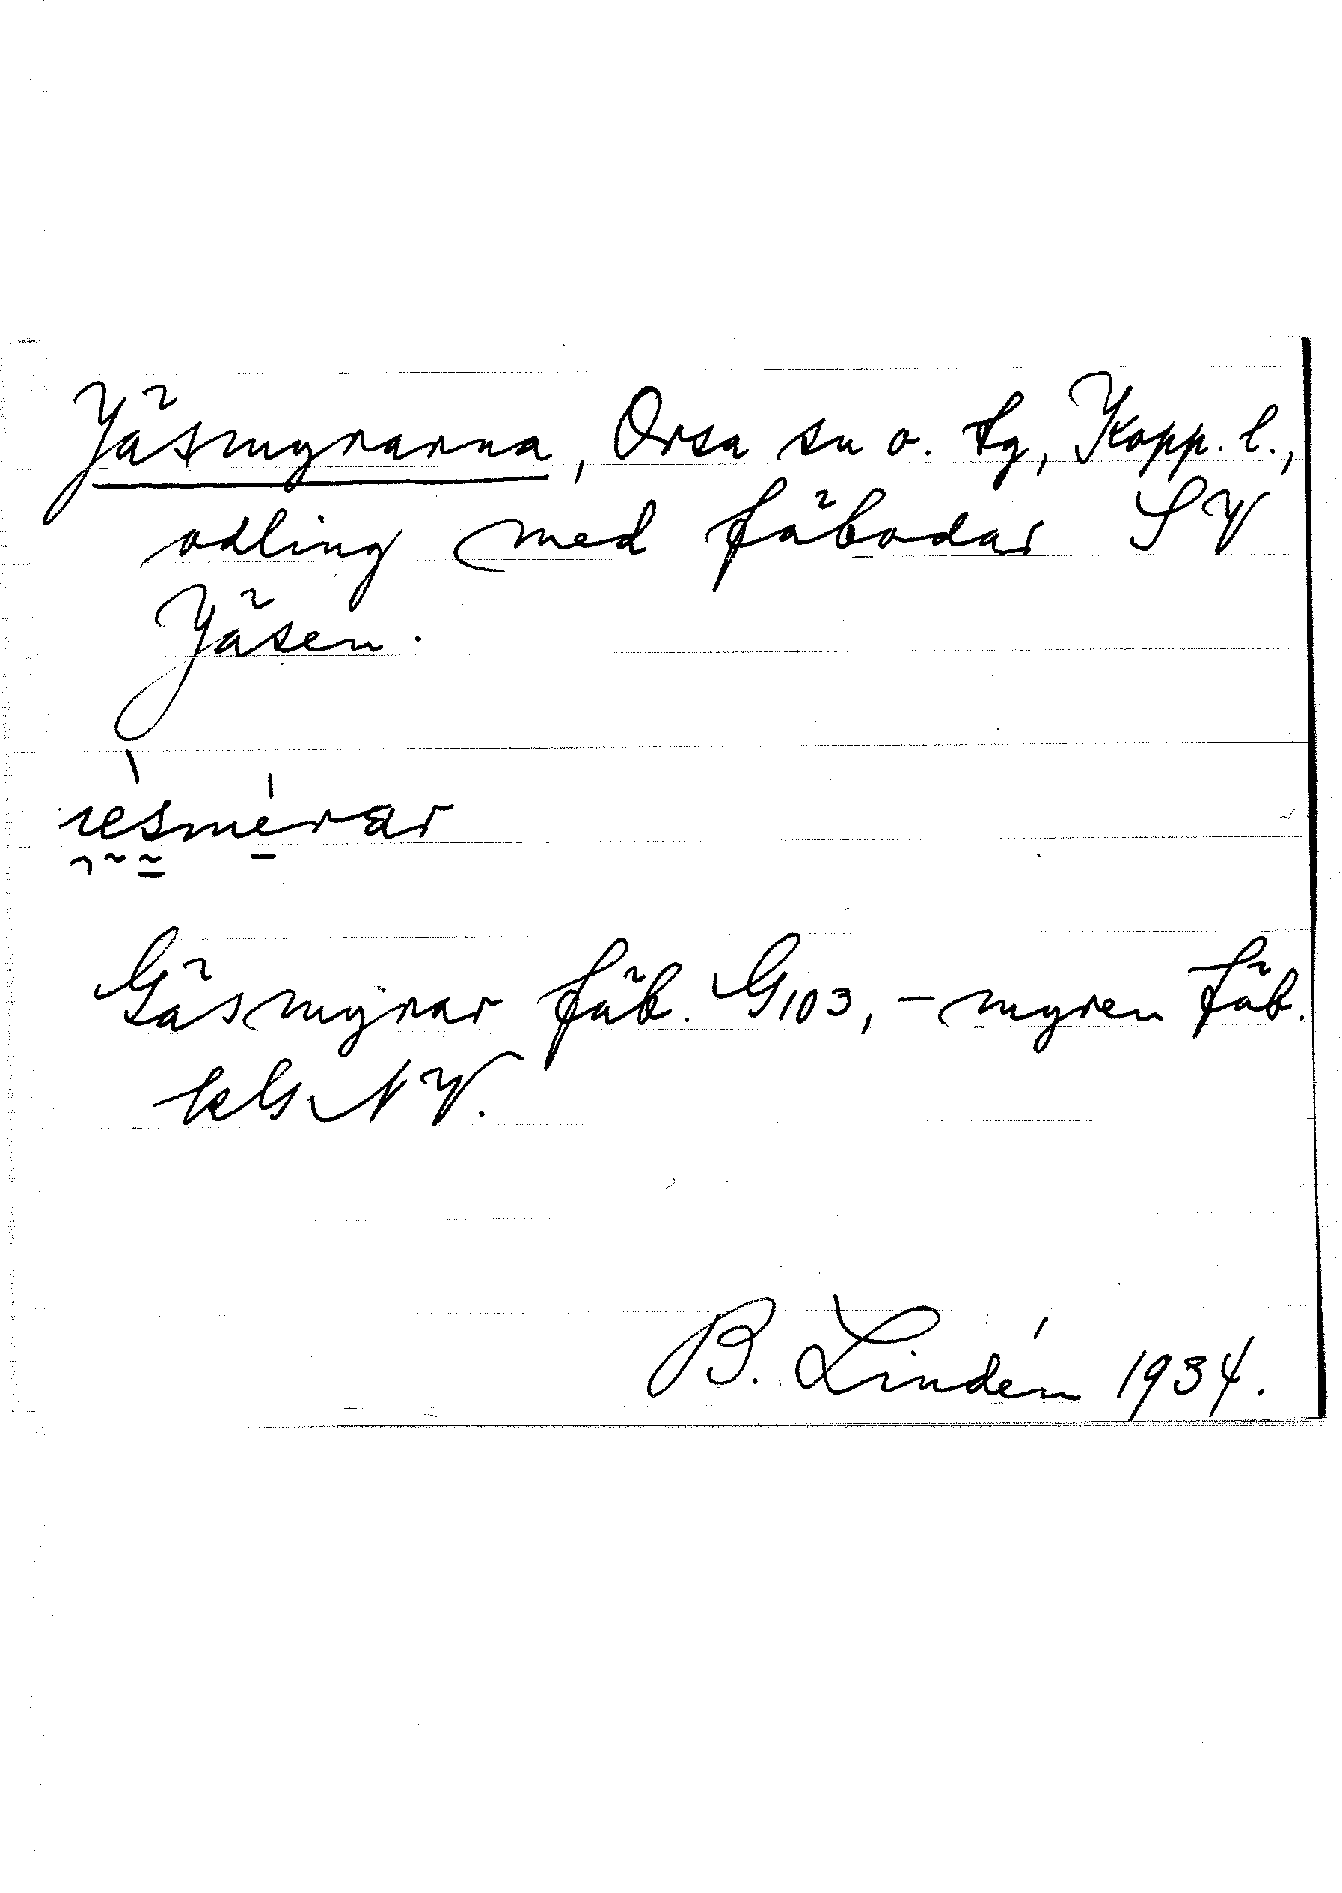 Jäsmyrarna, Orsa sn o. tg, Kopp. l.,
odling med fäbodar SV
Jäsen.
résmérar
Gäsmyrar fäb. G103, – myren fäb.
kG NV.
B. Lindén 1934.